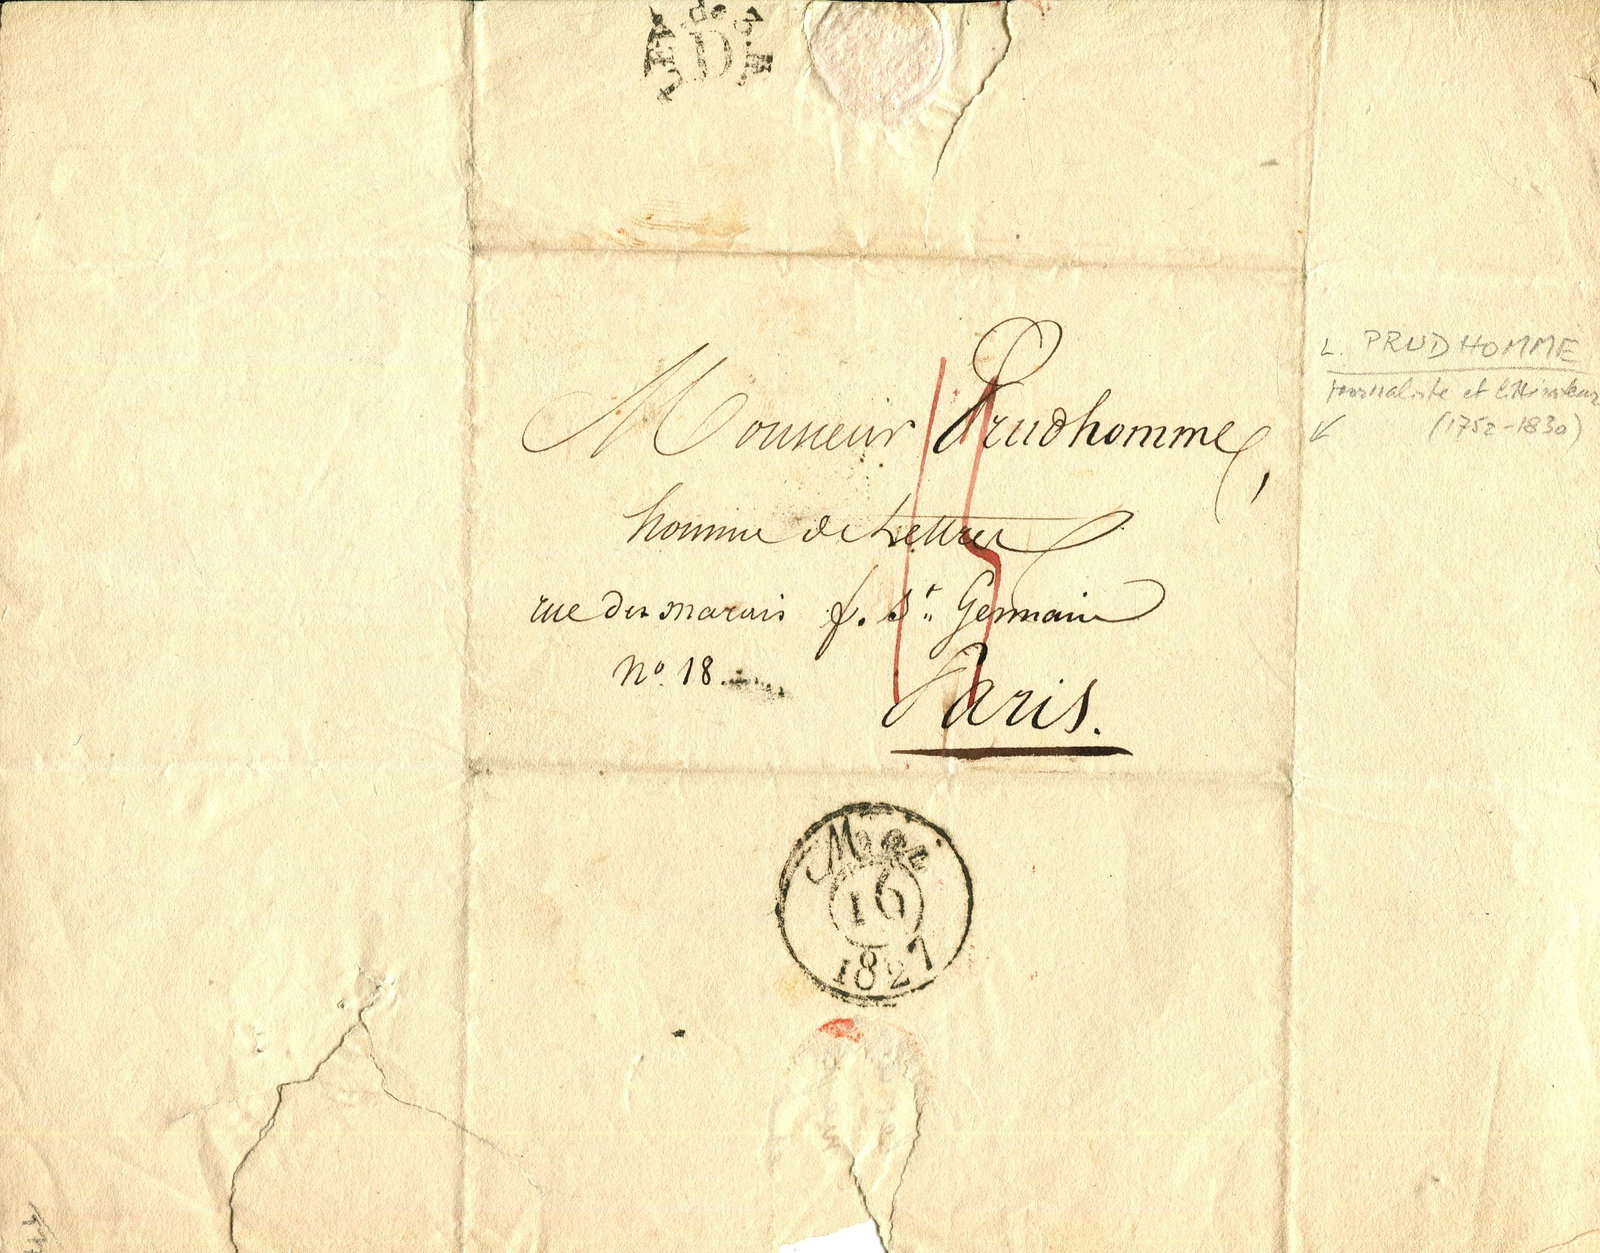 de
D
Monsieur Prudhomme,
homme de Lettres
rue des marais f. St. Germain
No. 18.
Paris.
L. PRUDHOMME
journaliste et littérateur
(1752-1830)
16
1827